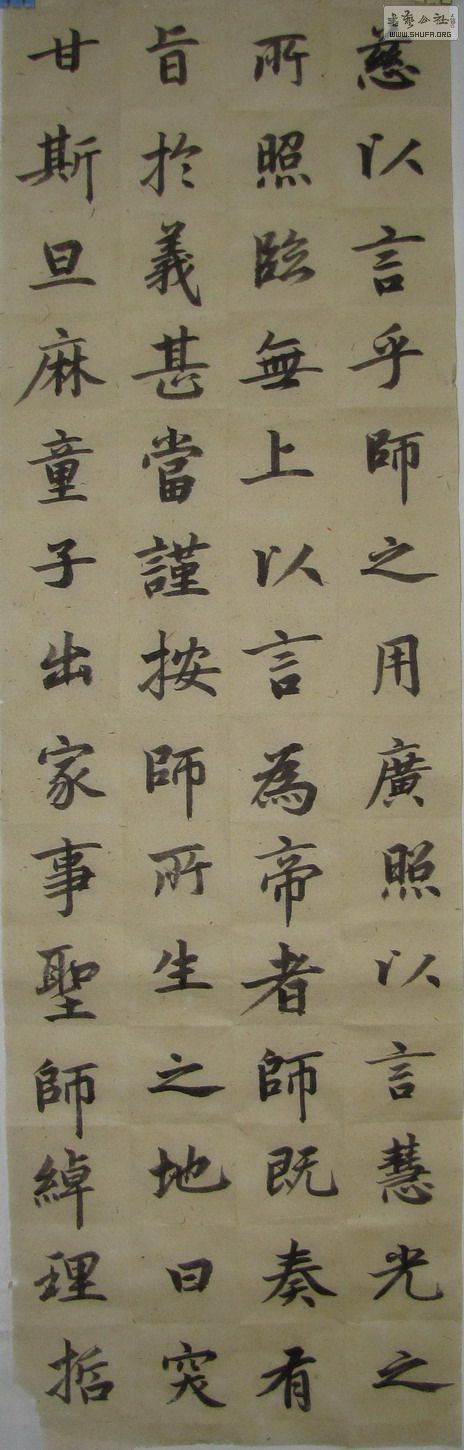 慈以言乎師之用廣照以言慧光之
所照臨無上以言為帝者師既奏有
旨於義甚當謹按師所生之地曰突
甘斯旦麻童子出家事聖師綽理哲
書藝公社
WWW.SHUFA.ORG